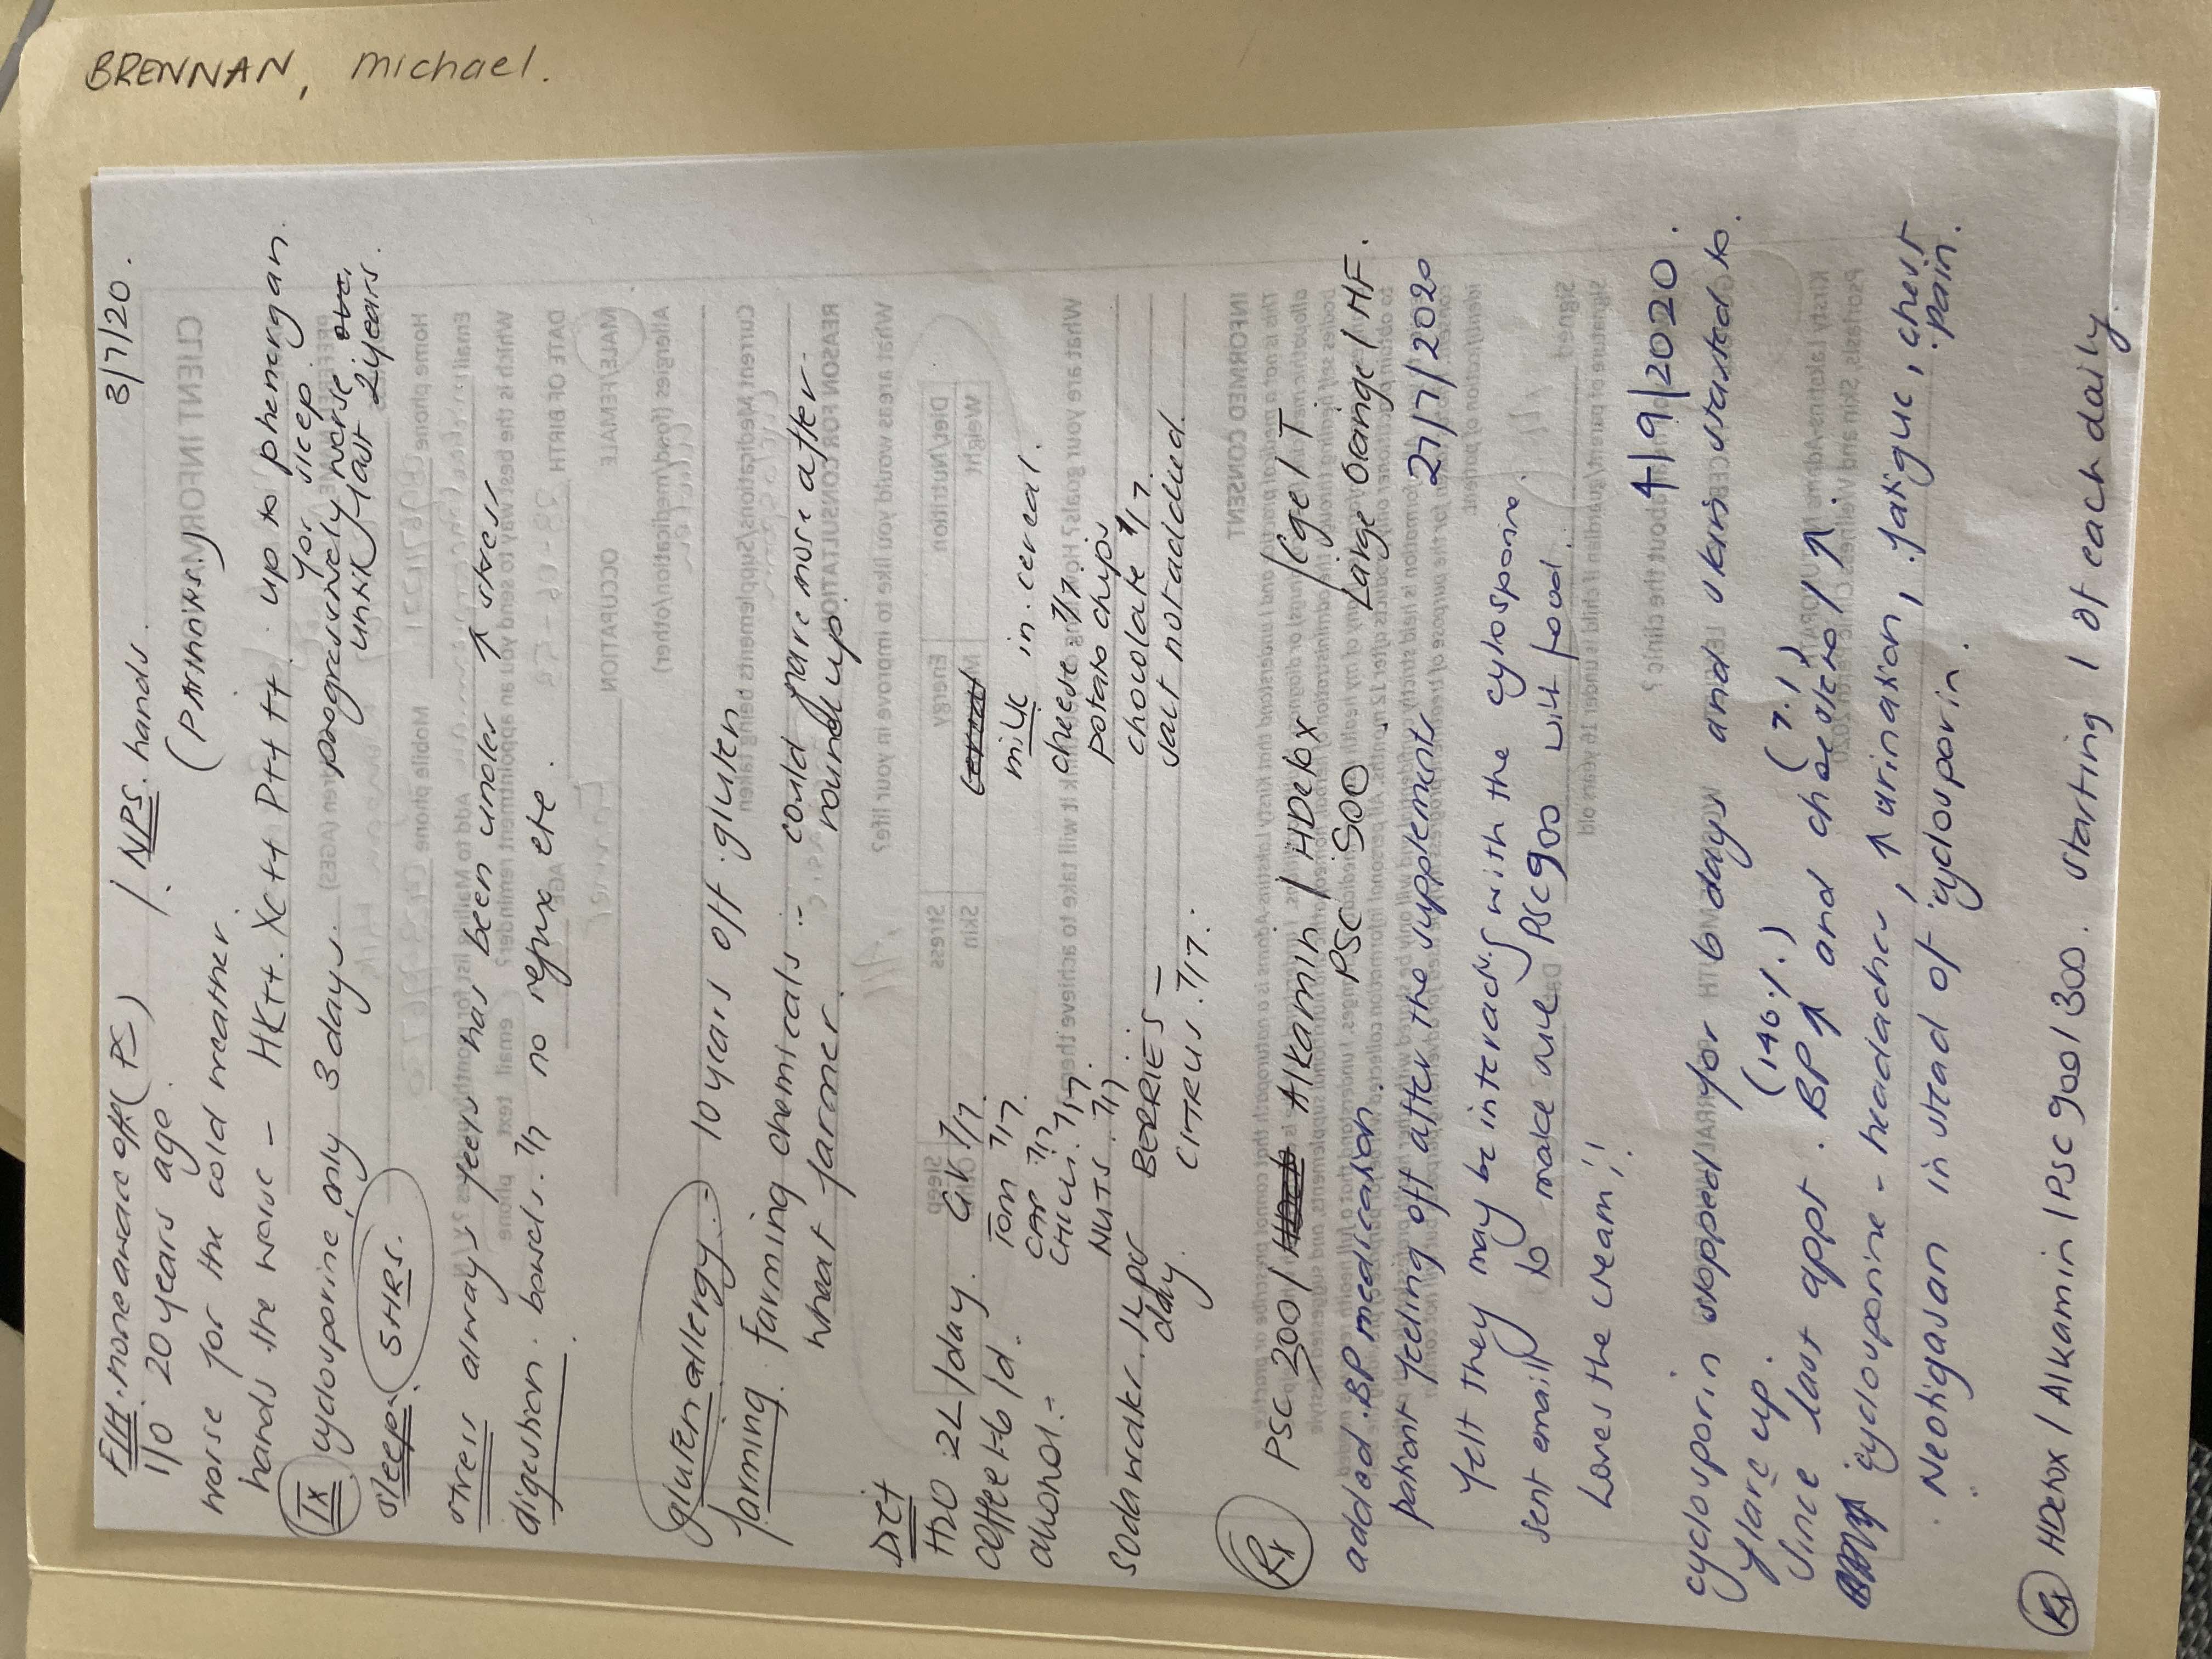 BRENNAN, Michael.
3/7/20.
FIH. none aware of. (PS) / NPS. hands.
1/0 20 years age.
worse for the cold weather.
hands the worse - HK++. Xc++ P+++ ++. up to phenergan
for sleep.
Tx cyclosporine only 3 days. progressively worse over
until last 2 years.
sleep. 5 HRS.
stress always feels has been under ↑ stress
digestion. bowels. 7/7 no reflux etc.
gluten allergy. - 10 years off gluten
farming. farming chemicals - could flare more after
wheat farmer. round up.
Diet
H2O 2L / day. GK 7/7.
coffee 1-6 / d. Tom 7/7.
alcohol. - CAP 7/7
CHILLI. 7/7.
NUTS. 7/7
soda water. 1L per day.
BERRIES -
CITRUS. 7/7.
milk in cereal.
cheese 7/7.
potato chips
chocolate 7/7.
salt not added.
Rx PSC 200 / Alkamin / HDetox / Lge / T
PSC / SOO. Large Orange / HF.
added. BP medication. 27/7/2020
patient feeling off after the supplements
felt they may be interacting with the cylosporine.
sent email to make sure PSC 900 with food.
Loves the cream!!
4/9/2020.
cyclosporin stopped for 6 days and skin started to
flare up.
(146/.) (7.1)
Since last appt. BP ↑ and cholesterol ↑.
cyclosporine - headaches, ↑ urination, fatigue, chest
pain.
Neotigasan in stead of cyclosporin.
Rx HDetox / Alkamin / PSC 900 / 300. starting 1 of each daily.